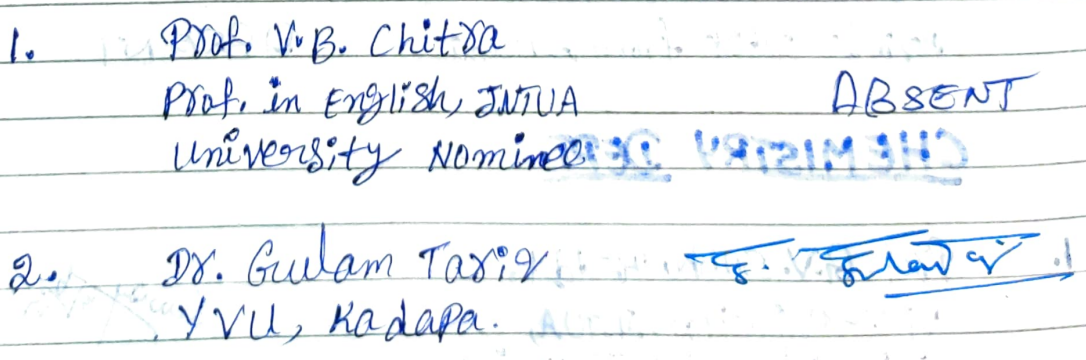 1. Prof. V.B. Chitra
Prof. in English, JNTUA ABSENT
University Nominee
2. Dr. Gulam Tariq
YVU, Kadapa.